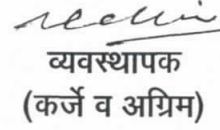 व्यवस्थापक
(कर्जे व अग्रिम)